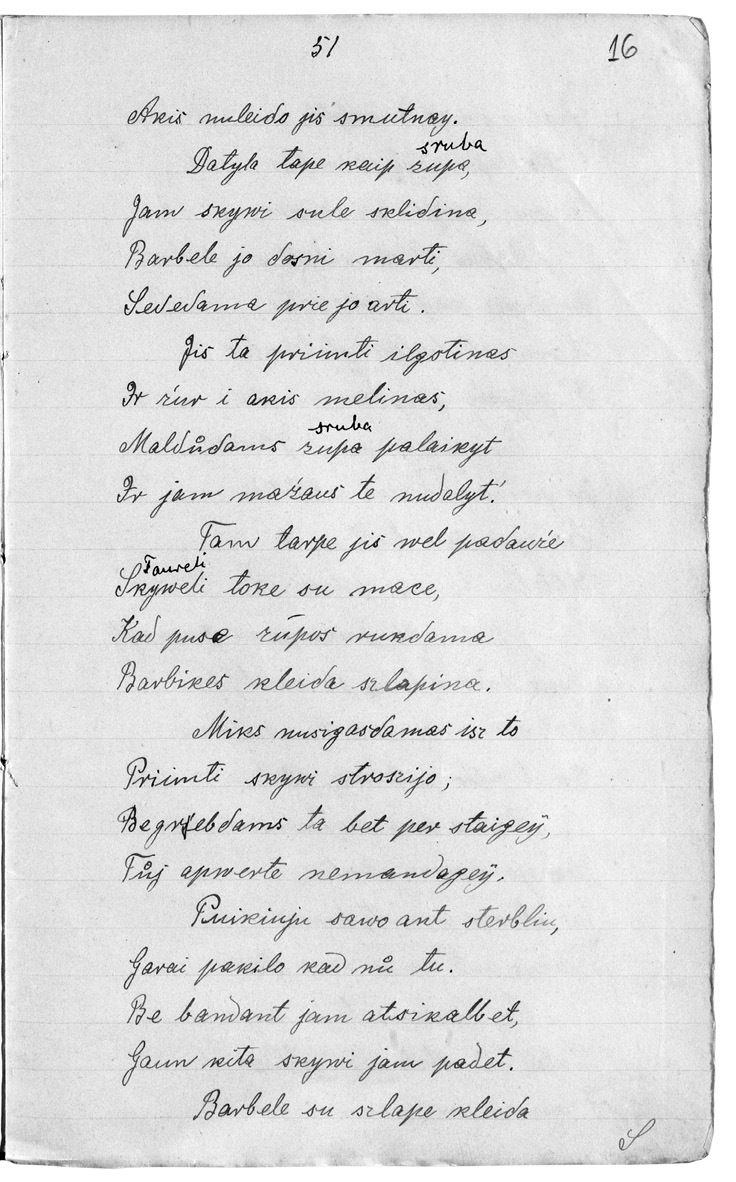 51
16
Akis nuleido jis smutney.
sruba
Datyla tape kaip zupa,
Jam skywi sule sklidina,
Barbele jo dosni marti,
Sededama prie jo arti.
Jis ta priimti ilgstinas
Ir żiur i akis melinas,
sruba
Maldůdams zupa palaikyt
Ir jam mażaus te nudalyt.
Tam tarpe jis wel padawże
Taureli
Skyweli toke su mace,
Kad puse zúpos rukdama
Barbikes kleida szlapina.
Miks nusigasdamas isz to
Priimti skywi stroszijo;
Begriebdams ta bet per staigeÿ,
Tůj apwerte nemandageÿ.
Puikiuju sawo ant sterbliu,
Garai pakilo kad nů tu.
Be bandant jam atsikalbet,
Gaun kita skywi jam padet.
Barbele su szlape kleida
S